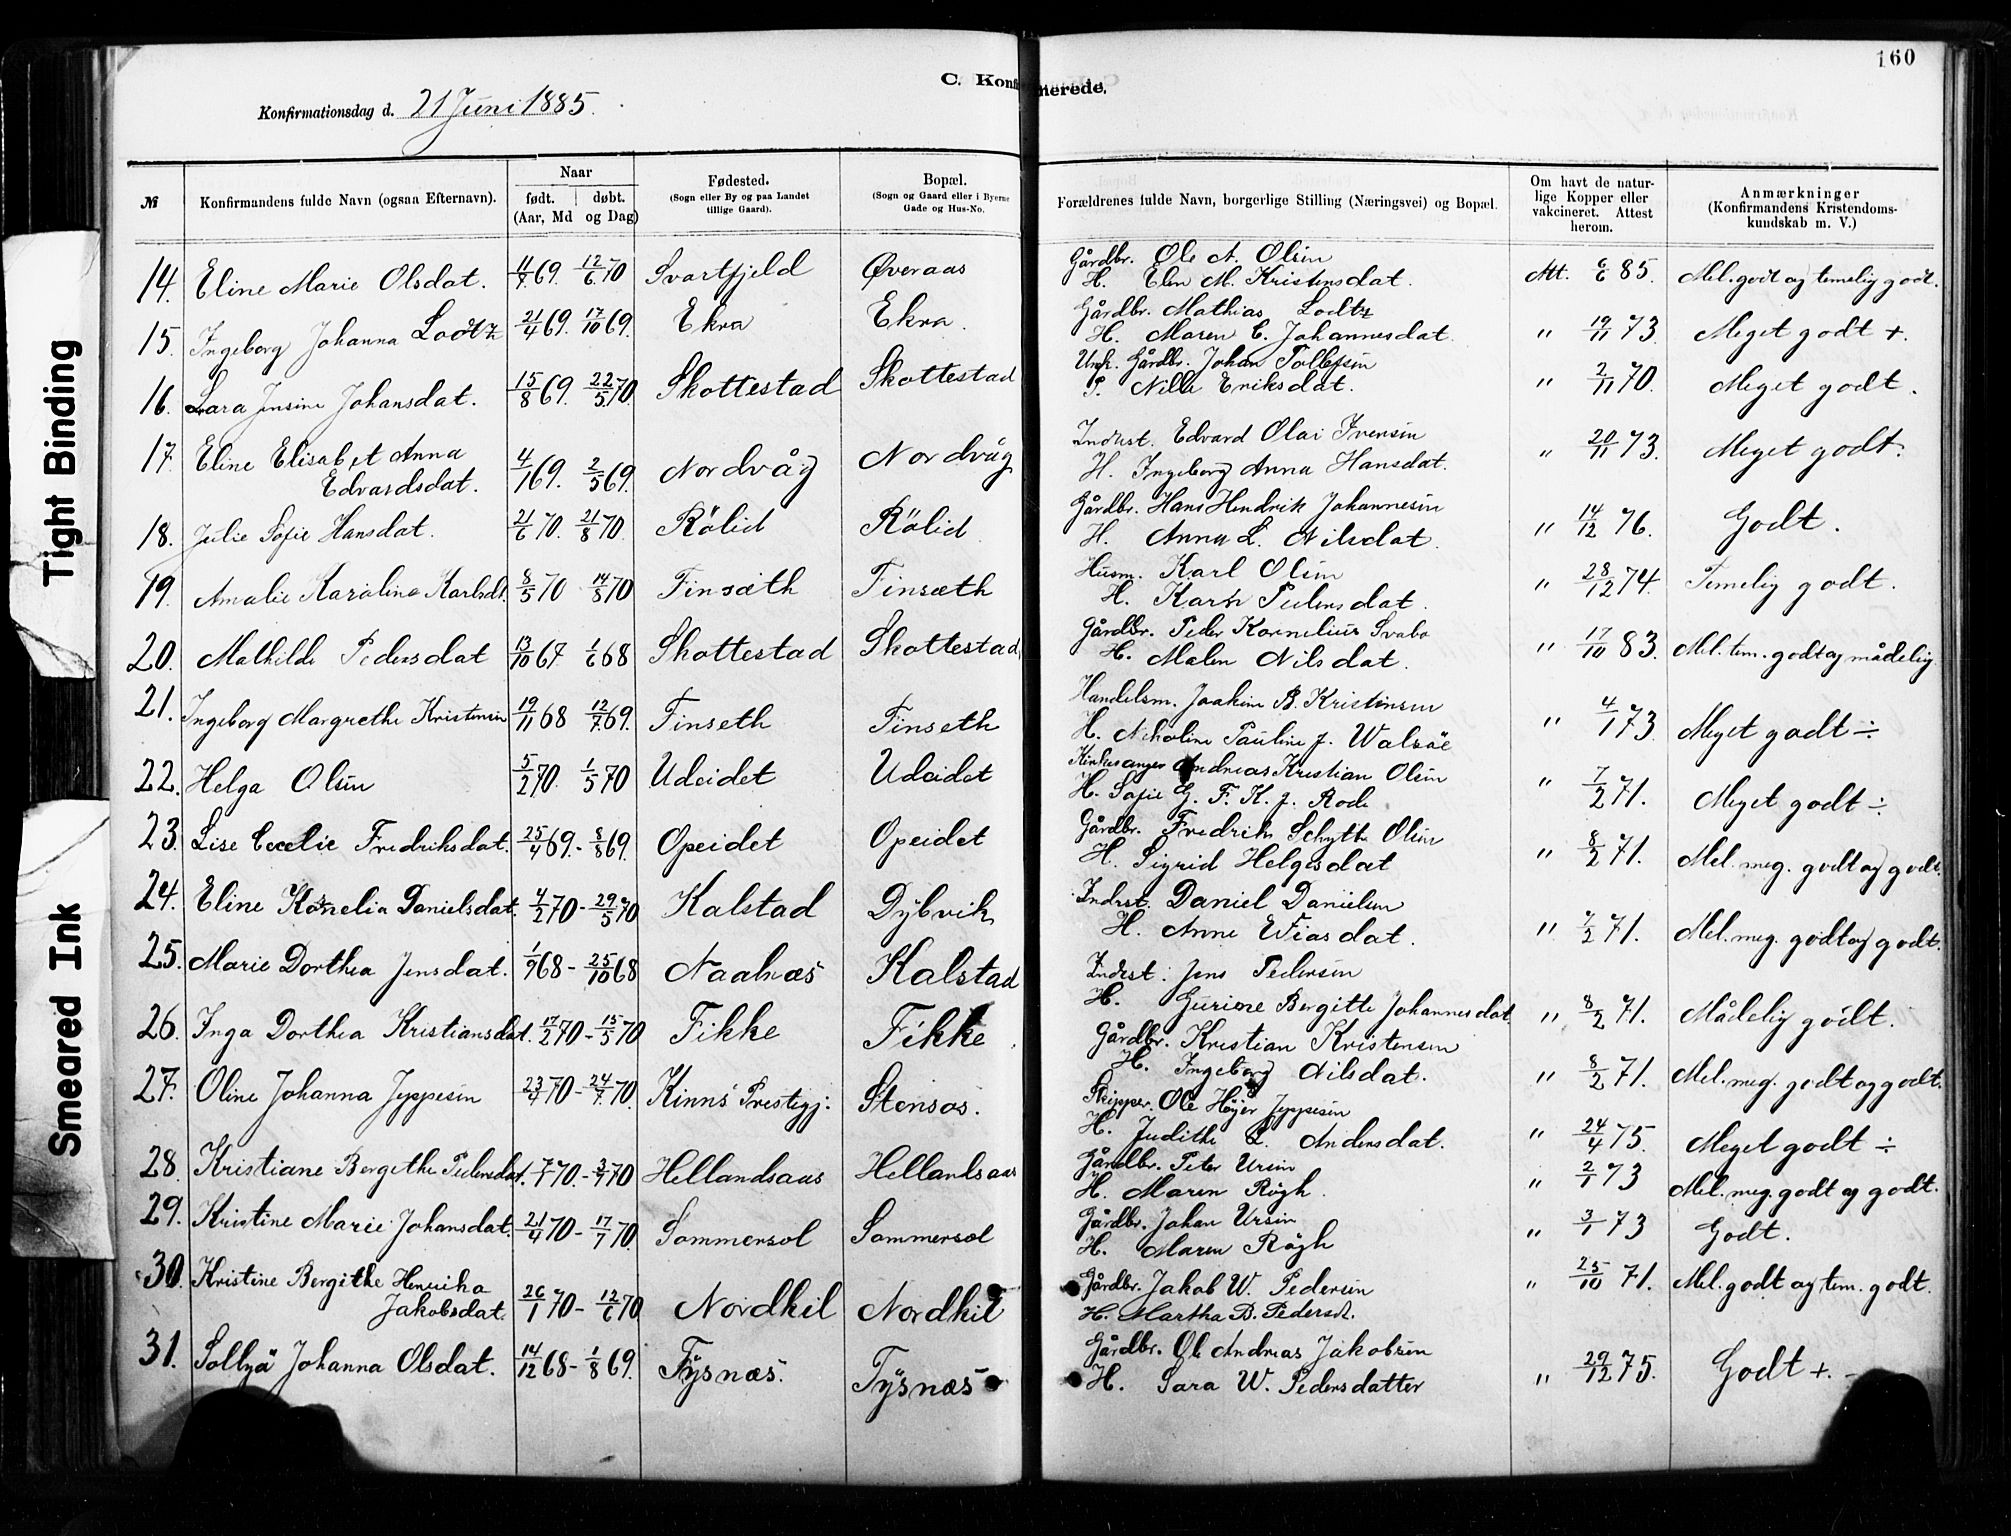 160
C. Konfirmerede.
Konfirmationsdag d. 21 Juni 1885.
№
Konfirmandens fulde Navn (ogsaa Efternavn).
Naar
født. døbt.
(Aar, Md og Dag)
Fødested.
(Sogn eller By og paa Landet
tillige Gaard).
Bopæl.
(Sogn og Gaard eller i Byerne
Gade og Hus-No.
Forældrenes fulde Navn, borgerlige Stilling (Næringsvei) og Bopæl.
Om havt de natur-
lige Kopper eller
vakcineret. Attest
herom.
Anmærkninger
(Konfirmandens Kristendoms-
kundskab m. V.)
Tight Binding
Smeared Ink
14. Eline Marie Olsdat. 69. 12/6 70 Svartfjeld Øveraas
Gårdbr. Ole A. Olsen
H. Elen M. Kristensdat.
Att. 6/6 85. Mel. godt og temelig godt.
15. Ingeborg Johanna Lodtz 21/4 69. 17/10 69. Ekra Ekra.
Gårdbr. Mathias Lodtz
H. Maren C. Johannesdat.
" 19/11 73. Meget godt +.
16. Lara Jensine Johansdat. 15/8 69. 22/5 70. Skottestad Skottestad
Gårdbr. Johan Tollefsen
P. Nille Eriksdat.
" 2/11 70. Meget godt.
17. Eline Elisabet Anna
Edvardsdat. 4/1 69. 2/5 69. Nordvåg Nordvåg
Inderst. Edvard Olai Ivensen
H. Ingeborg Anna Hansdat.
" 20/11 73. Meget godt.
18. Julie Sofie Hansdat. 21/6 70. 21/8 70. Rölid Rölid
Gårdbr. Hans Hendrik Johannesen
H. Anna L. Nilsdat.
" 14/12 76. Godt.
19. Amalie Karoline Karlsdt. 8/5 70 14/8 70 Finsæth Finsæth
Husm. Karl Olsen
H. Karn Pedersdat.
" 28/12 74. Temelig godt.
20. Mathilde Pedersdat 13/10 67 1/6 68 Skottestad Skottestad
Gårdbr. Peder Kornelius Svabo
H. Malen Nilsdat.
" 17/10 83. Mel. tem. godt og mådelig
21. Ingeborg Margrethe Kristensen 19/11 68 12/7 69. Finseth Finseth
Handelsm. Joakim B. Kristensen
H. Nikoline Pauline f. Walsöe
" 4/1 73. Meget godt ÷
22. Helga Olsen 5/2 70. 1/5 70 Udeidet Udeidet
Kirkesanger Andreas Kristian Olsen
H. Sofie G. F. K. f. Rode
" 7/2 71. Meget godt ÷
23. Lise Cecelie Fredriksdat. 25/4 69. - 8/8 69. Opeidet Opeidet
Gårdbr. Fredrik Schytte Olsen
H. Sigrid Helgesdat
" 8/2 71. Mel. meg. godt og godt.
24. Eline Kornelia Danielsdat. 4/2 70 - 29/5 70 Kalstad Dybvik
Inderst. Daniel Danielsen
H. Anne Eliasdat.
" 7/2 71. Mel. meg. godt og godt.
25. Marie Dorthea Jensdat. 1/9 68 - 25/10 68 Naalnæs Kalstad
Inderst. Jens Pedersen
H. Bergitte Johannesdat.
" 8/2 71. Mådelig godt.
26. Inga Dorthea Kristiansdat. 17/2 70 - 15/5 70 Fikke Fikke
Gårdbr. Kristian Kristensen
H. Ingeborg Nilsdat.
" 8/2 71. Mel. meg. godt og godt.
27. Oline Johanna Jeppesen 23/4 70 - 24/7 70. Kinns Prestegj. Stensos.
Skipper. Ole Høyer Jeppesen
H. Judithe L. Andersdat.
" 24/4 75. Meget godt ÷
28 Kristiane Bergethe Pedersdat. 70. - 70 Hellandsaas Hellandsaas
Gårdbr. Peter Ursin
H. Maren Røgh.
" 2/1 73 Mel. meg. godt og godt.
29. Kristine Marie Johansdat. 21/4 70 - 17/7 70. Sommersol Sommersol
Gårdbr. Johan Ursin
H. Maren Røgh
" 3/1 73 Godt.
30. Kristine Bergithe Henrika
Jakobsdat. 26/1 70 - 12/6 70 Nordkil Nordkil
Gårdbr. Jakob W. Pedersen
H. Martha B. Pedersdt.
" 25/10 71. Mel. godt og tem. godt.
31. Solløi Johanna Olsdat. 14/12 68 - 1/8 69. Tysnæs. Tysnæs
Gårdbr. Ole Andreas Jakobsen
H. Sara W. Pedersdatter
" 29/12 75. Godt +.